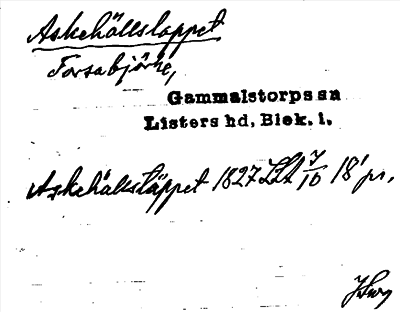 Askehållslappet
Forsabjörke,
Gammalstorps sn
Listers hd, Blek. l.
Askehålsläppet 1827 LSA 7/10 18' pr.